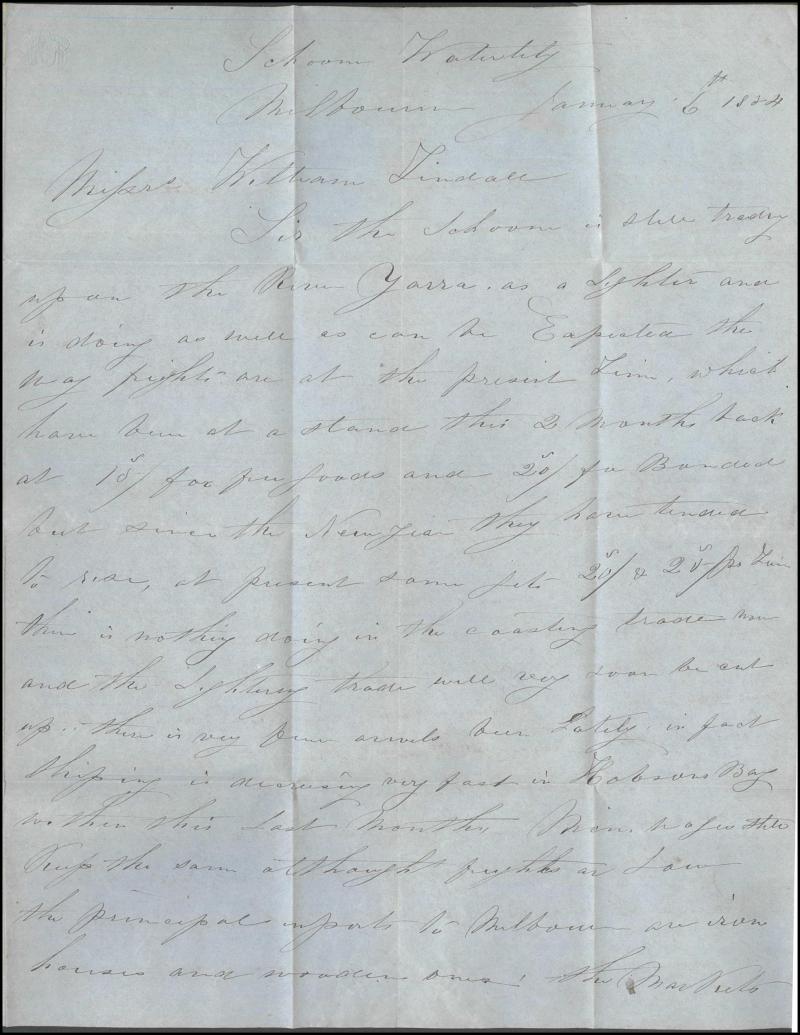 Schoonr Waterlily
Melbourne January 6th 1854
Messrs William Tindall
Sir the Schoonr is still trading
up on the River Yarra. as a Lighter and
is doing as well as can be Expected the
way frights are at the present Time, which
have been at a stand this 2 Months back
at 15/ for free Goods and 20/ for Bonded
but since the New year they have tended
to rise, at present some gets 20/ & 25/ pr Tun
thire is nothing doing in the coasting trade now
and the Lightering trade will very soon be cut
up. thire is very few arivels been Lately. in fact
Shiping is decresing very fast in Hobsons Bay
within this Last Months, Mens wages still
Keep the same althought frights ar Low
the principal inports to Melbourn are iron
houses and wooden ones. the Markets